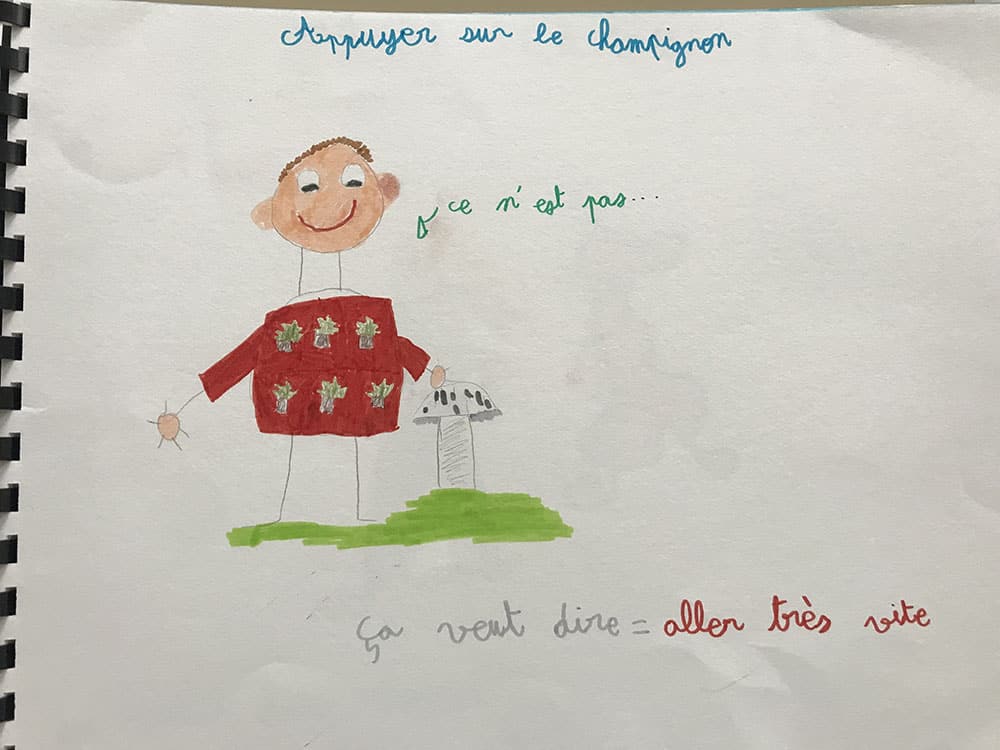 Appuyer sur le champignon
ce n'est pas...
ça veut dire = aller très vite